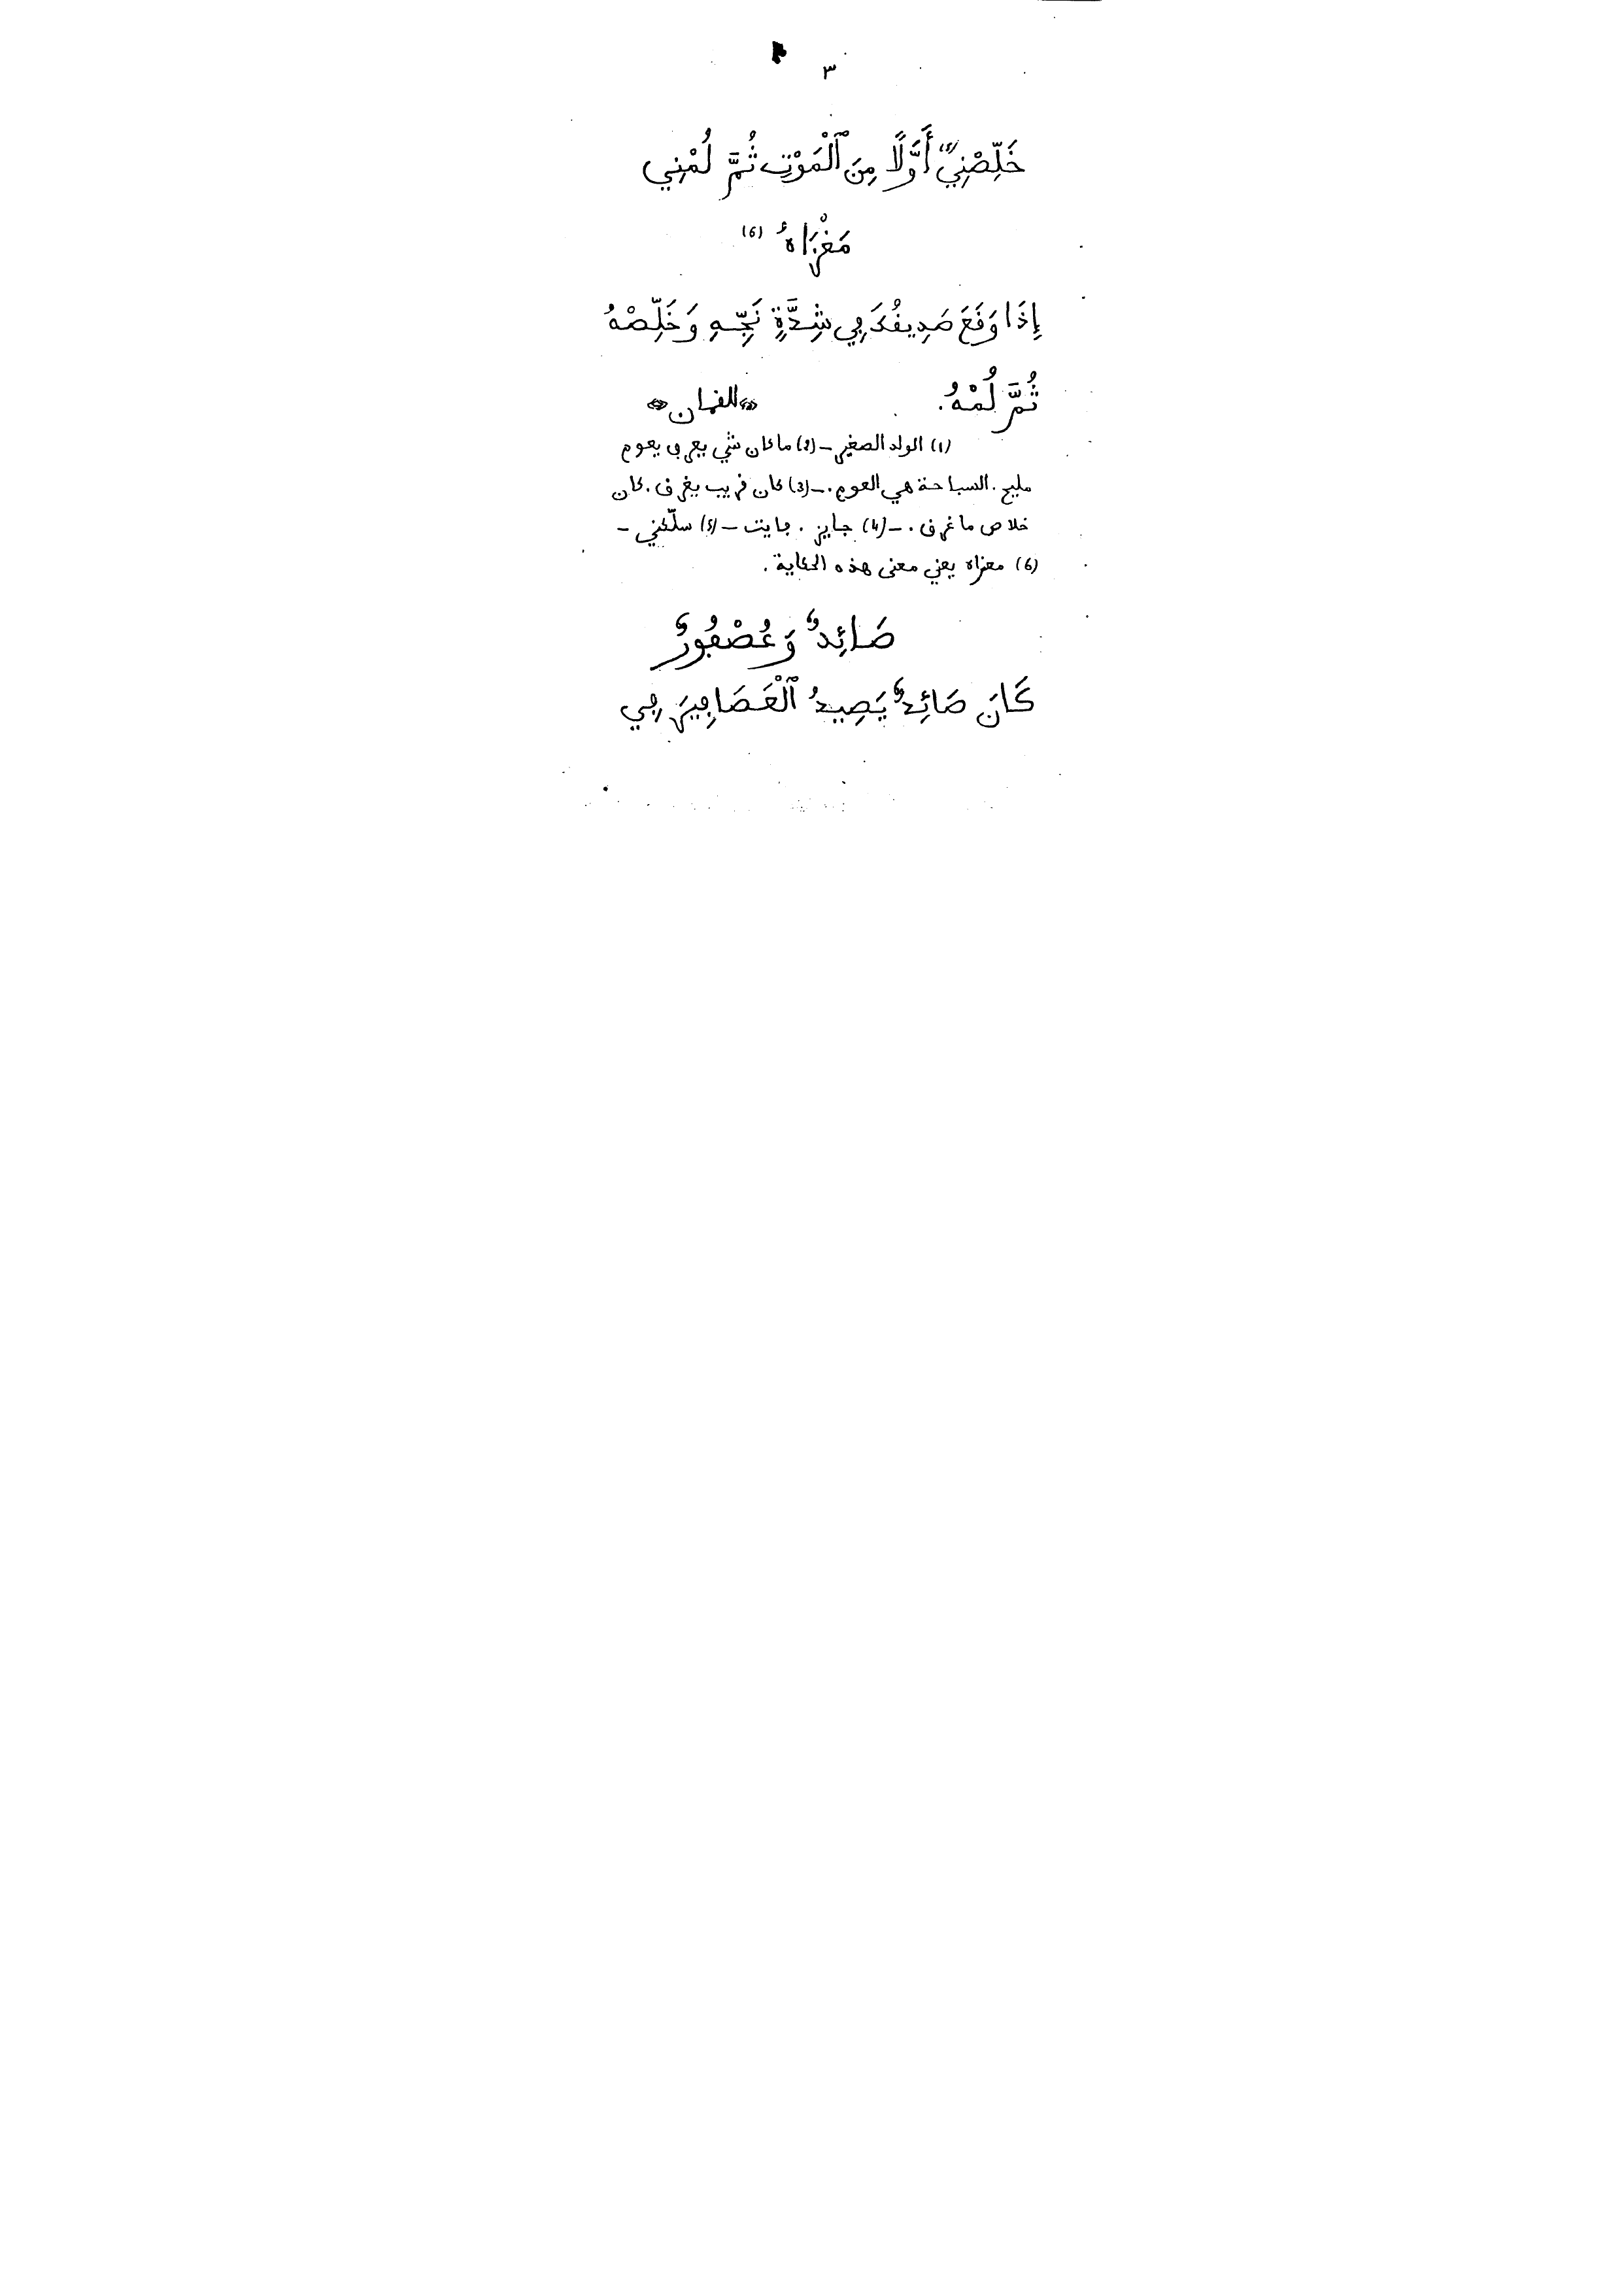 ٣
خَلِّصْنِي (5) أَوَّلًا مِنَ ٱلْمَوْتِ ثُمَّ لُمْنِي
مَغْزَاهُ (6)
إِذَا وَقَعَ صَدِيقُكَ فِي شِدَّةٍ نَجِّهِ وَخَلِّصْهُ
ثُمَّ لُمْهُ. «لقمان»
(1) الولد الصغير – (2) ما كان شي يعرف يعوم
مليح. السباحة هي العوم. – (3) كان قريب يغرق. كان
خلاص ما غرق. – (4) جايز. فايت – (5) سلّكني –
(6) مغزاه يعني معنى هذه الحكاية.
صَائِدٌ وَعُصْفُورٌ
كَانَ صَائِدٌ يَصِيدُ ٱلْعَصَافِيرَ فِي